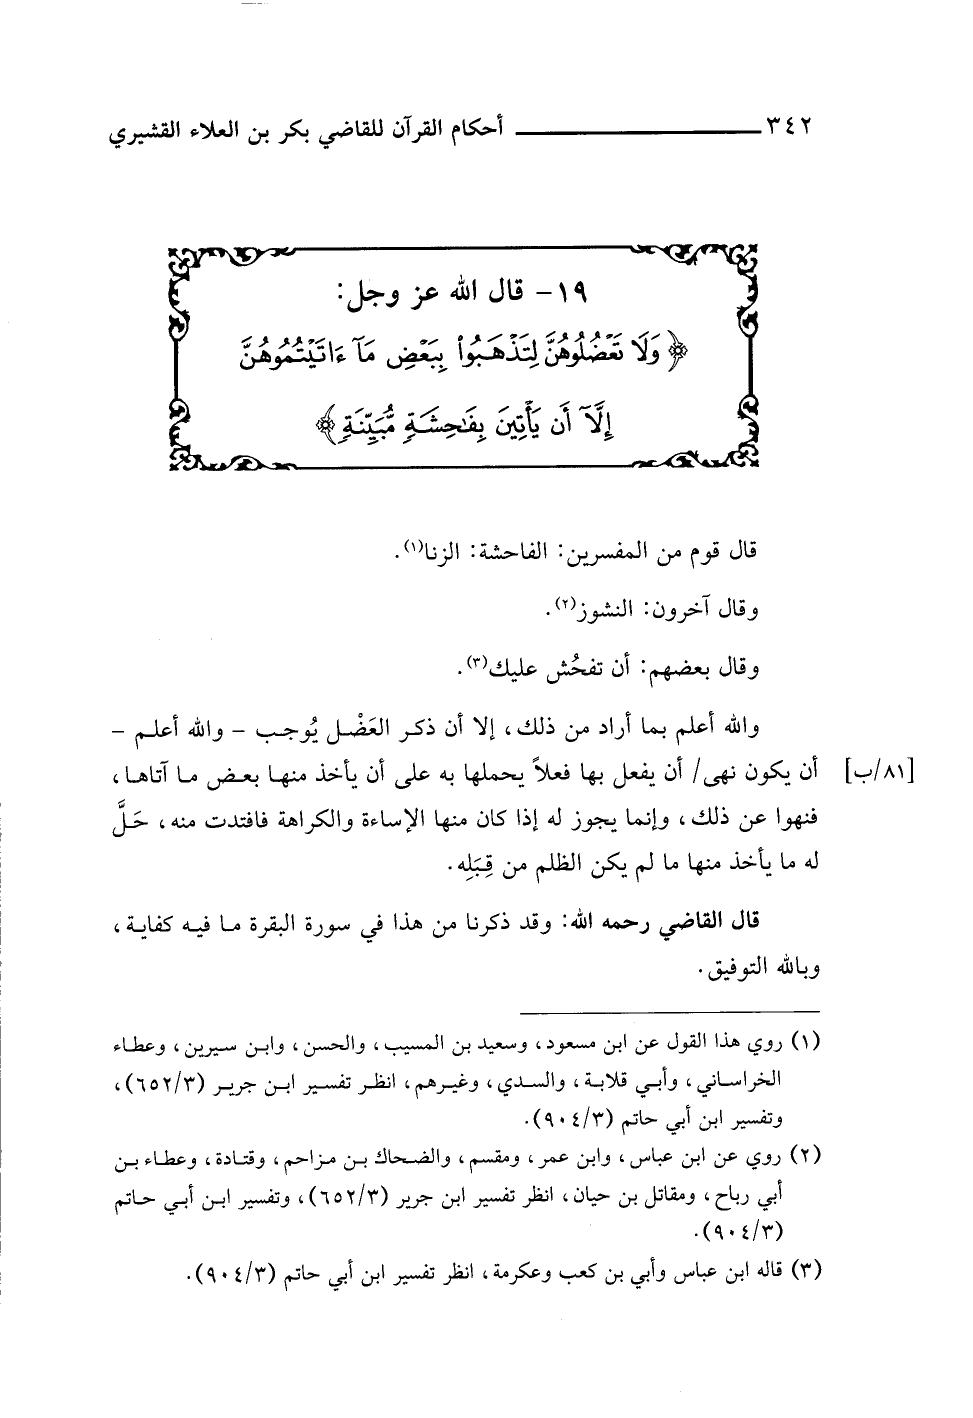 ٣٤٢ أحكام القرآن للقاضي بكر بن العلاء القشيري
١٩- قال الله عز وجل:
﴿وَلَا تَعْضُلُوهُنَّ لِتَذْهَبُواْ بِبَعْضِ مَآ ءَاتَيْتُمُوهُنَّ
إِلَّآ أَن يَأْتِينَ بِفَٰحِشَةٍ مُّبَيِّنَةٍ﴾
قال قوم من المفسرين: الفاحشة: الزنا(١).
وقال آخرون: النشوز(٢).
وقال بعضهم: أن تفحُش عليك(٣).
والله أعلم بما أراد من ذلك، إلا أن ذكر العَضْل يُوجب - والله أعلم -
[٨١/ب] أن يكون نهى/ أن يفعل بها فعلاً يحملها به على أن يأخذ منها بعض ما آتاها،
فنهوا عن ذلك، وإنما يجوز له إذا كان منها الإساءة والكراهة فافتدت منه، حَلَّ
له ما يأخذ منها ما لم يكن الظلم من قِبَلِه.
قال القاضي رحمه الله: وقد ذكرنا من هذا في سورة البقرة ما فيه كفاية،
وبالله التوفيق.
(١) روي هذا القول عن ابن مسعود، وسعيد بن المسيب، والحسن، وابن سيرين، وعطاء
الخراساني، وأبي قلابة، والسدي، وغيرهم، انظر تفسير ابن جرير (٦٥٢/٣)،
وتفسير ابن أبي حاتم (٩٠٤/٣).
(٢) روي عن ابن عباس، وابن عمر، ومقسم، والضحاك بن مزاحم، وقتادة، وعطاء بن
أبي رباح، ومقاتل بن حيان، انظر تفسير ابن جرير (٦٥٢/٣)، وتفسير ابن أبي حاتم
(٩٠٤/٣).
(٣) قاله ابن عباس وأبي بن كعب وعكرمة، انظر تفسير ابن أبي حاتم (٩٠٤/٣).